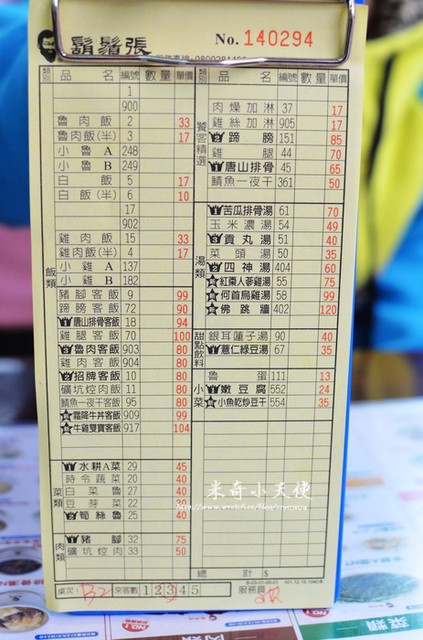 鬍鬚張
No. 140294
類別 品名 編號 數量 單價
1
900
魯肉飯 2 33
魯肉飯(半) 3 17
小魯 A 248
小魯 B 249
白飯 5 17
白飯(半) 6 10
17
902
雞肉飯 15 33
雞肉飯(半) 4 17
小雞 A 137
小雞 B 182
飯類
豬腳客飯 9 99
蹄膀客飯 72 90
唐山排骨客飯 18 94
雞腿客飯 70 100
魯肉客飯 903 80
雞肉客飯 904 80
招牌客飯 10 80
礦坑焢肉飯 11 80
鯖魚一夜干客飯 95 80
霜降牛丼客飯 909 99
牛雞雙寶客飯 917 104
菜類
水耕A菜 29 45
時令蔬菜 20 40
白菜魯 27 40
豆芽菜 22 30
筍絲魯 25 40
肉類
豬腳 32 75
礦坑焢肉 33 50
類別 品名 編號 數量 單價
饕客精選
肉燥加淋 37 17
雞絲加淋 905 17
蹄膀 151 85
雞腿 44 70
唐山排骨 45 65
鯖魚一夜干 361 50
湯類
苦瓜排骨湯 61 70
玉米濃湯 54 49
貢丸湯 51 40
菜頭湯 50 35
四神湯 404 60
紅棗人蔘雞湯 55 75
何首烏雞湯 58 99
佛跳牆 402 120
甜點飲料
銀耳蓮子湯 90 40
薏仁綠豆湯 67 35
小菜
魯蛋 111 13
嫩豆腐 552 24
小魚乾炒豆干 554 35
米奇小天使
總計 $
桌次: B2 來客數 1 2 3 4 5 服務員